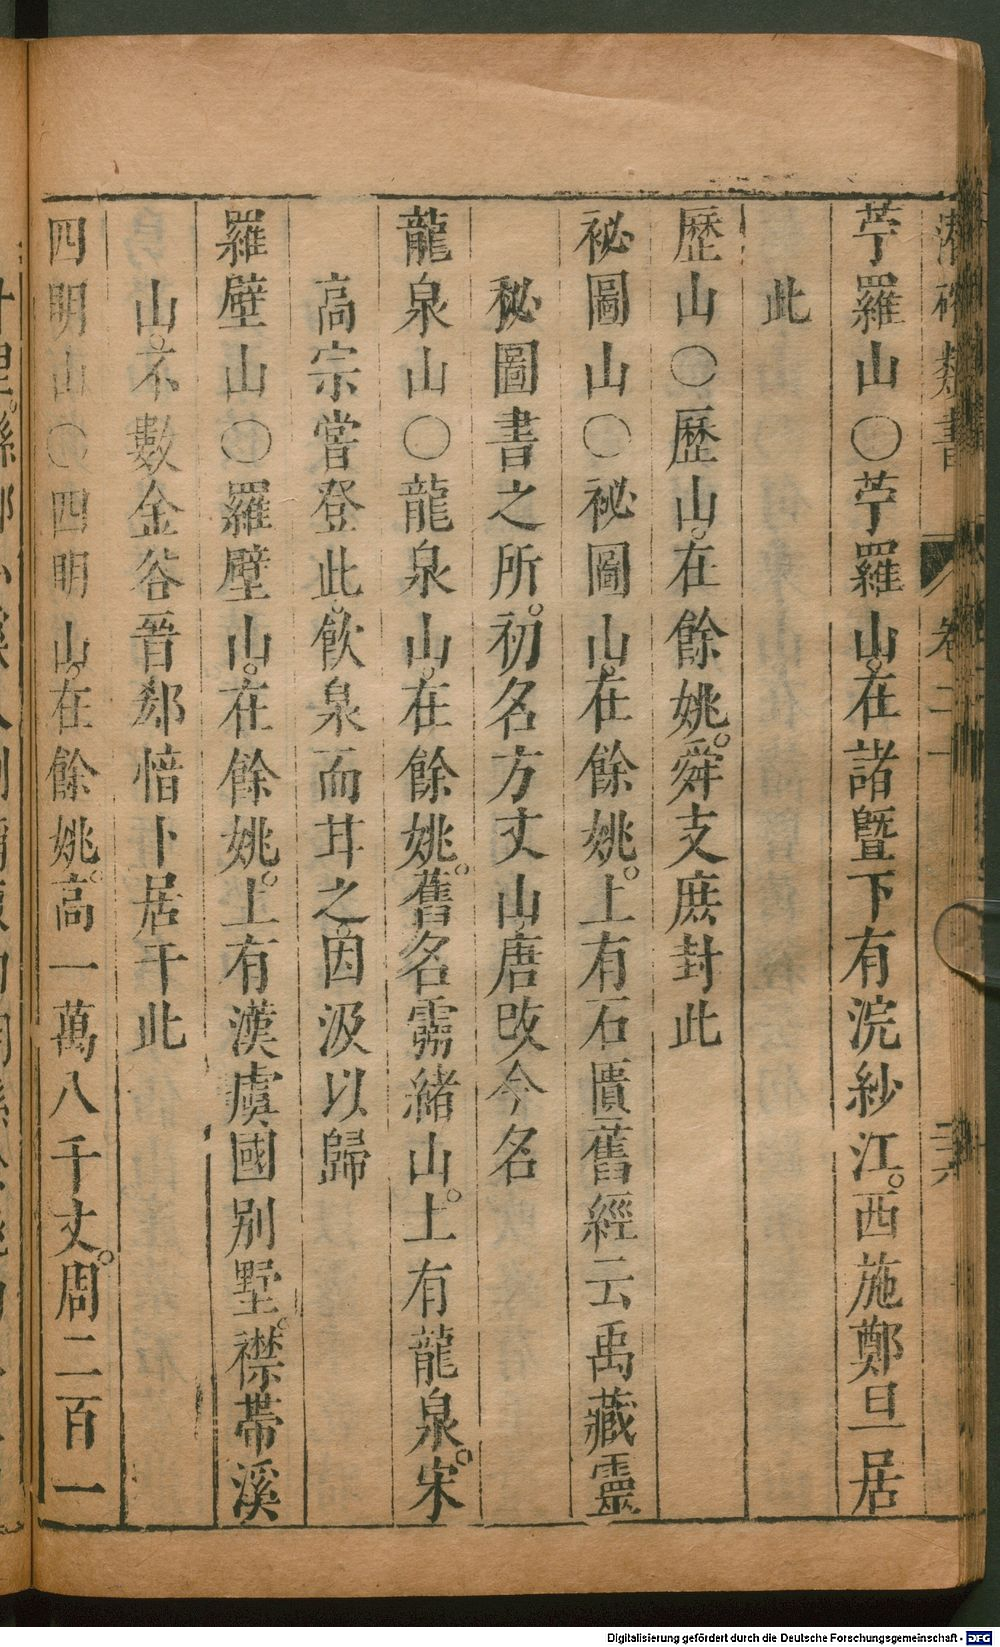 類書 卷二十
苧羅山○苧羅山在諸暨下有浣紗江西施鄭旦居
此
歷山○歷山在餘姚舜支庶封此
祕圖山○祕圖山在餘姚上有石匱舊經云禹藏靈
祕圖書之所初名方丈山唐改今名
龍泉山○龍泉山在餘姚舊名靈緒山上有龍泉宋
高宗嘗登此飲泉而甘之因汲以歸
羅壁山○羅壁山在餘姚上有漢虞國別墅襟帶溪
山不數金谷晉郄愔卜居于此
四明山○四明山在餘姚高一萬八千丈周二百一
Digitalisierung gefördert durch die Deutsche Forschungsgemeinschaft - DFG